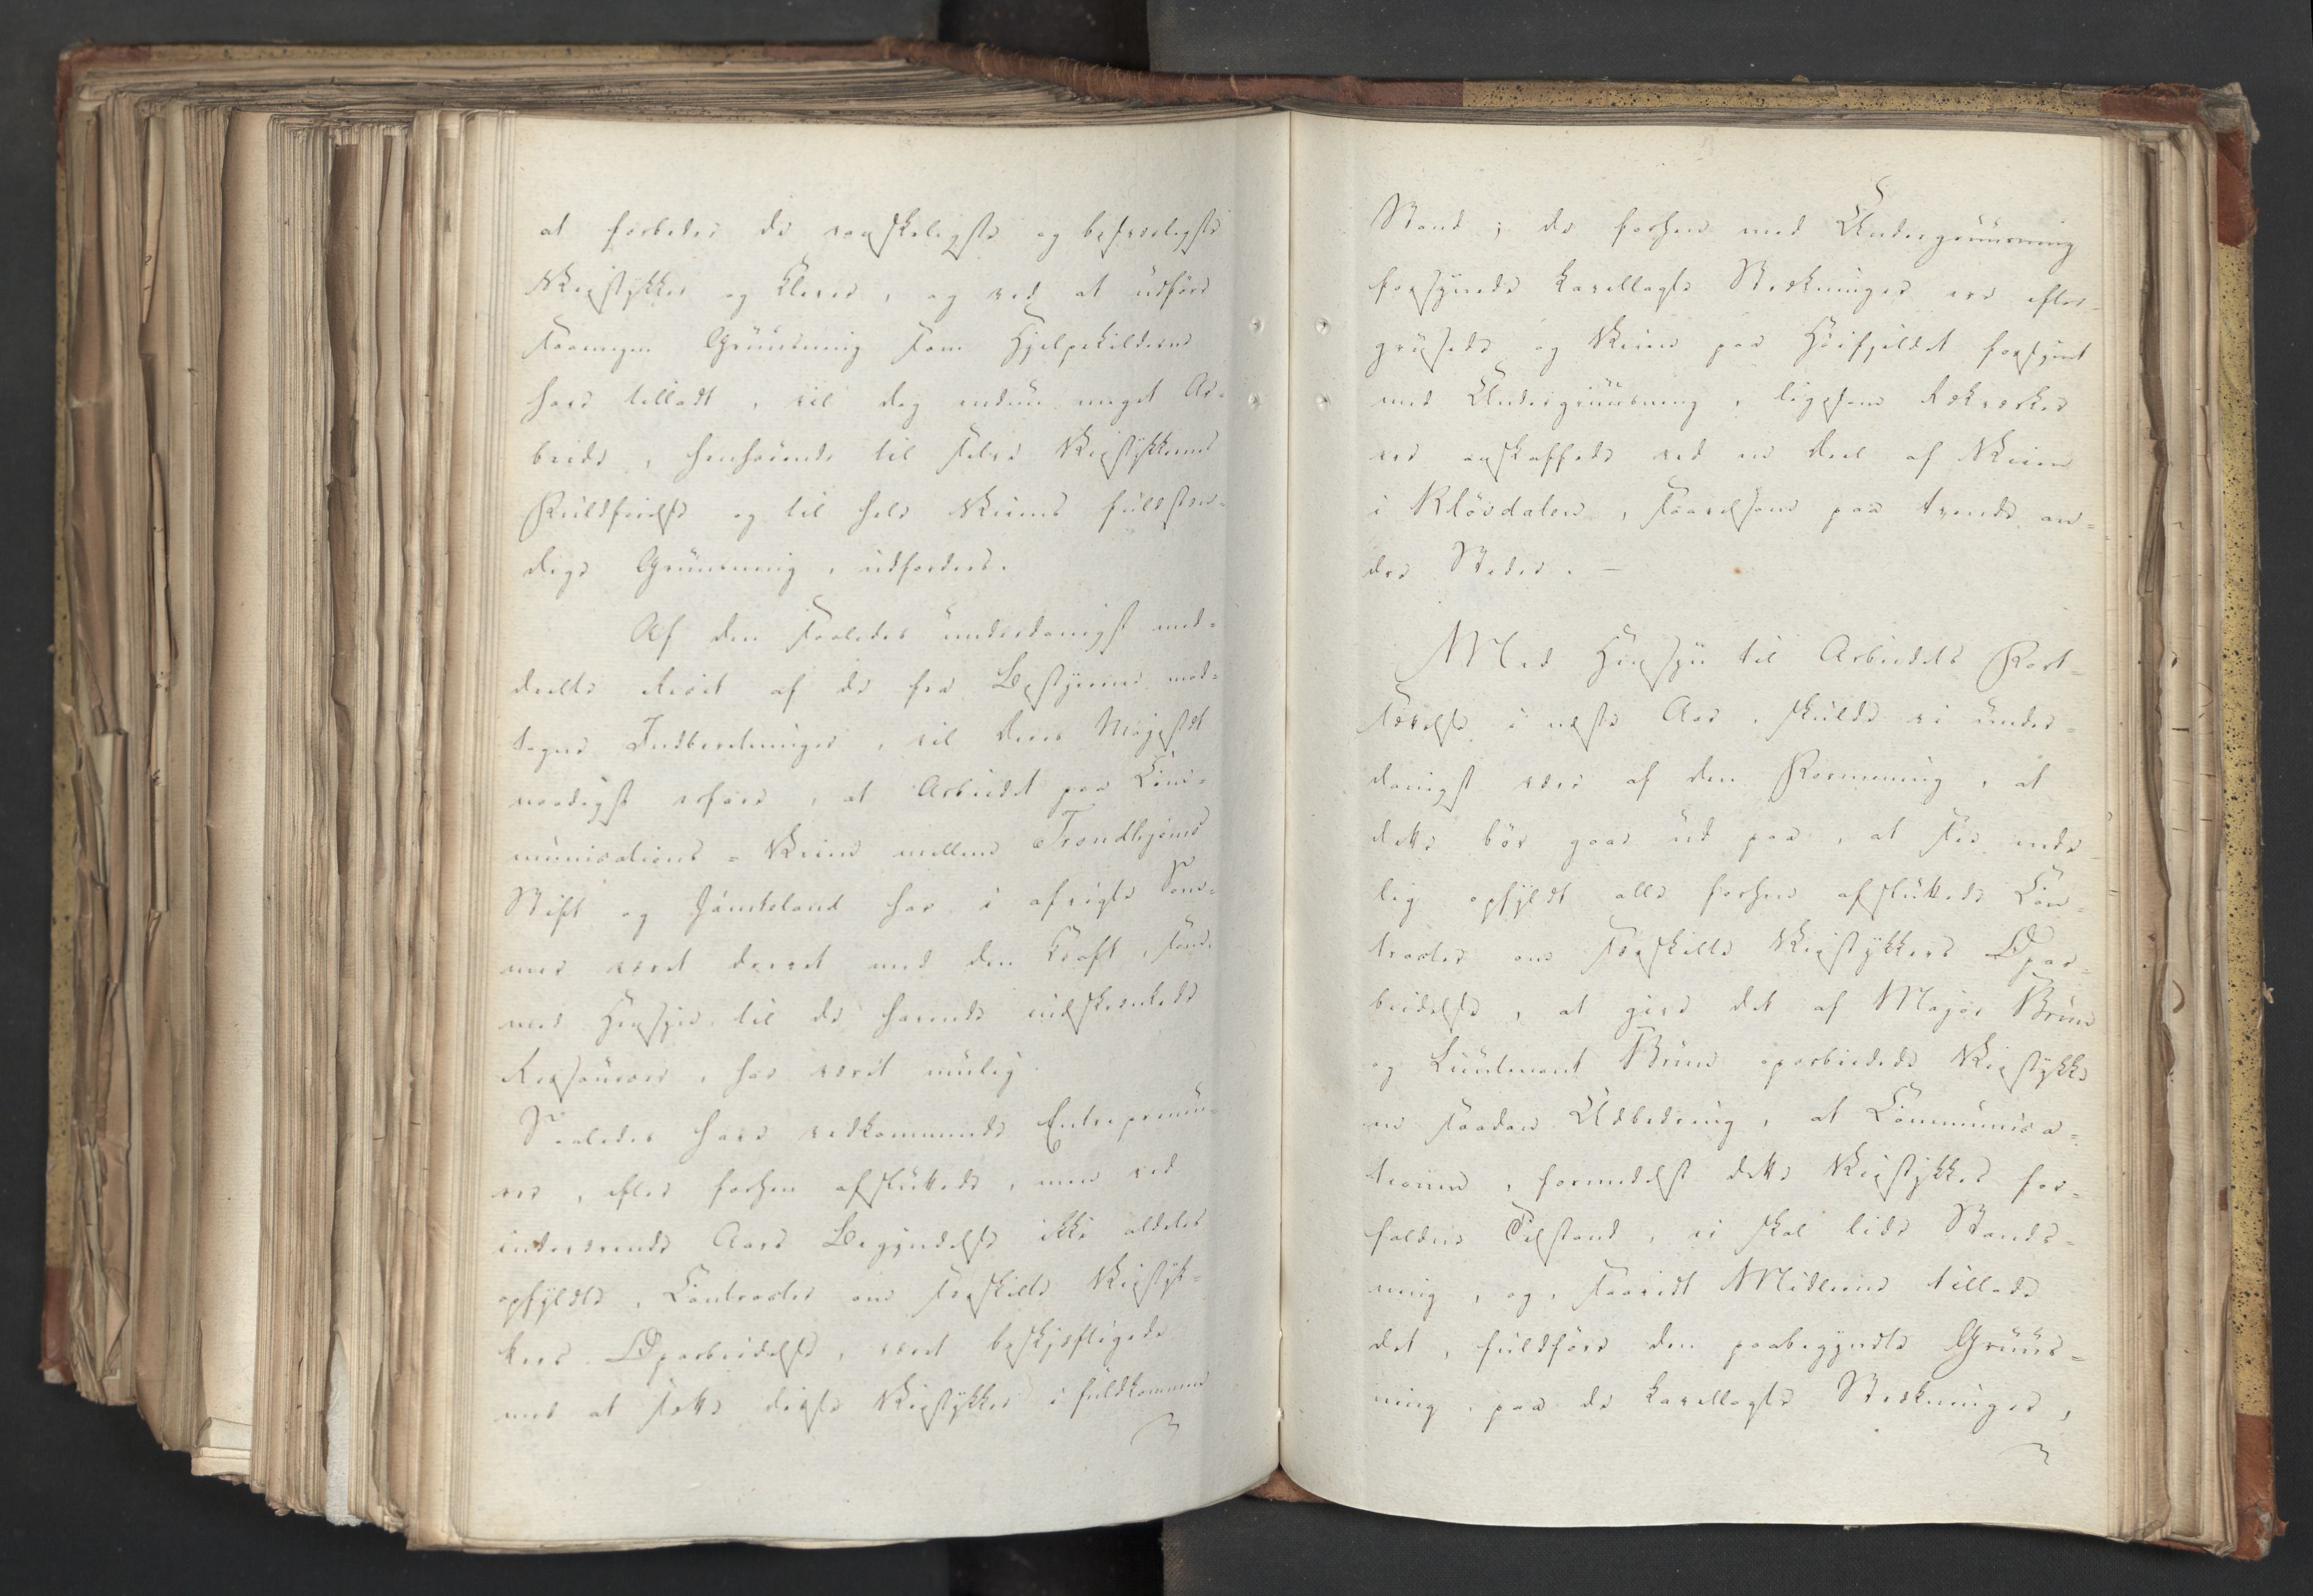 at forbedre de vanskeligste og besværligste
Veistykker og Klever, og ved at udføre
saamegen Gruusning som Hjelpekilderne
have tilladt, vil dog endnu meget Ar-
beide, henhørende til selve Veistykkernes
Fuldførelse og til hele Veiens fuldstæn-
dige Gruusning, udfordres.
Af den saaledes underdanigst med-
deelte Revüe af de fra Bestyrerne mod-
tagne Indberetninger, vil Deres Majestet
naadigst erfare, at Arbeidet paa Com-
munications-Veien mellem Trondhjems
Stift og Jämteland har i afvigte Som-
mer været drevet med den Kraft, som,
med Hensyn til de havende indskrænkede
Ressourcer, har været mulig.
Saaledes have vedkommende Entrepreneu-
rer, efter forhen afsluttede, men ved
indeværende Aars Begyndelse ikke aldeles
opfyldte, Contracter om særskilte Veistyk-
kers Oparbeidelse, været beskjeftigede
med at sætte disse Veistykker i fuldkommen
Stand; de forhen med Undergruusning
forsynede kavellagte Strækninger ere efter-
grusede og Veien paa Höifjeldet forsynt
med Undergruusning, ligesom Rækværker
ere anskaffede ved en Deel af Veien
i Værdalen, saavelsom paa tvende an-
dre Steder. –
Med Hensyn til Arbeidets Fort-
sættelse i næste Aar, skulde vi under-
danigst være af den Formening, at
dette bör gaae ud paa, at see ende-
lig opfyldt alle forhen afsluttede Con-
tracter om særskilte Veistykkers Opar-
beidelse, at give det af Major Brun
og Lieutenant Brun oparbeidede Veistykke
en saadan Udbedring, at Communica-
tionen, formedelst dette Veistykkes for-
faldne Tilstand, ei skal lide Stands-
ning, og, saavidt Midlerne tillade
det, fuldføre den paabegyndte Gruus-
ning paa de kavellagte Strækninger,